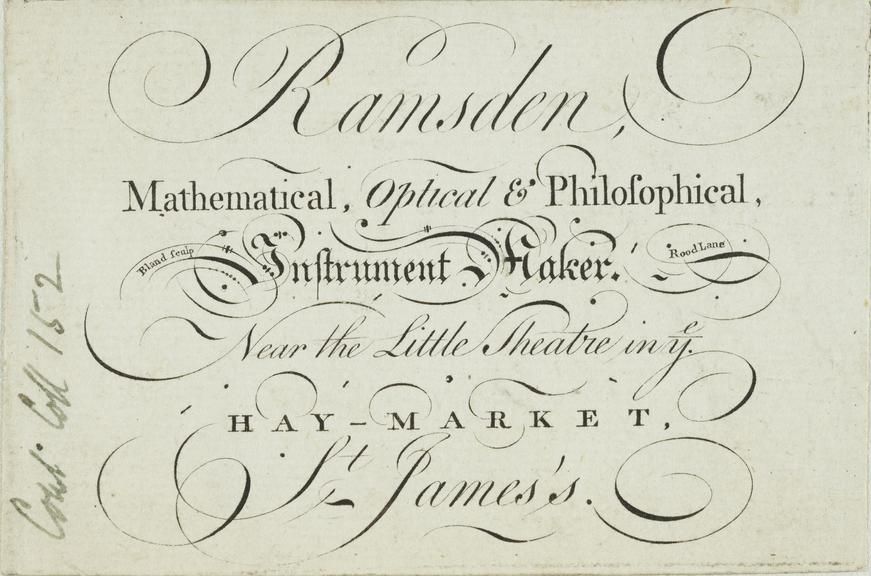 Ramsden,
Mathematical, Optical & Philoſophical,
Bland ſculp
Inſtrument Maker.
Rood Lane
Near the Little Theatre in yͤ.
HAY-MARKET,
St. James's.
Court Coll 152